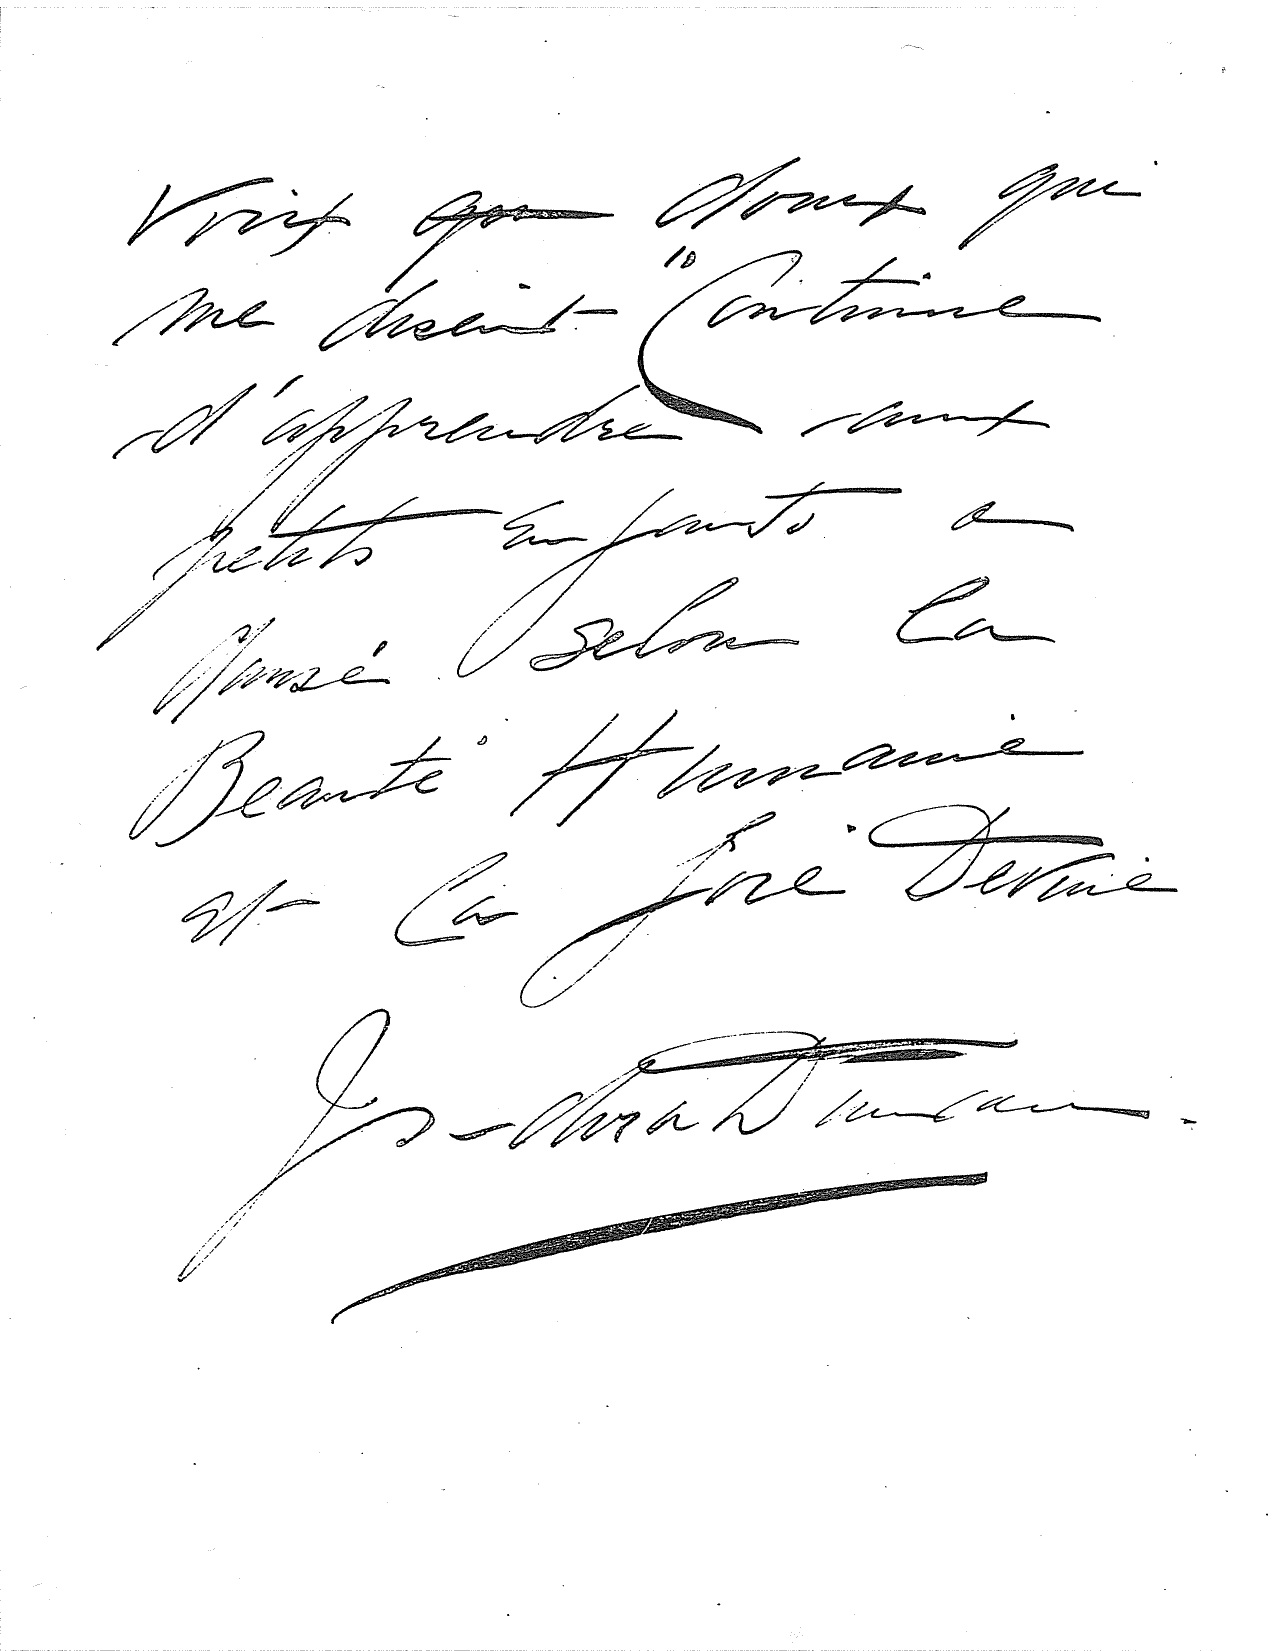 Voix que doux qui
me disent "Continue
d'apprendre aux
petits enfants a
dansé selon la
Beauté Humaine
et la Joie Devine
Isadora Duncan.